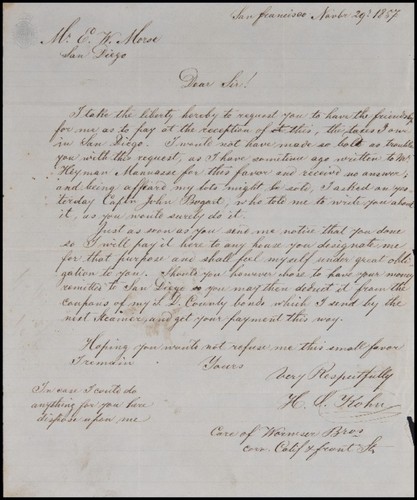 San francisco Novbr 29th 1857
Mr. E. W. Morse
San Diego
Dear Sir!
I take the liberty hereby to request you to have the friendship
for me as to pay at the reception of this, the taxes I am
in San Diego. I would not have made so bold as trouble
you with this request, as I have sometime ago written to Mr
Heyman Manasse for this favor and receive no answer,
and being affeard my lots might be sold, I asked on yes
terday Captn John Bogart, who told me to write you about
it, as you would surely do it.
Just as soon as you send me notice that you done
so I will pay it here to any house you designate me
for that purpose and shall feel myself under great obli
gation to you. Should you however chose to have your money
remitted to San Diego so you may then deduct it from the
coupons of my S. D. County bonds which I send by the
next Steamer, and get your payment this way.
Hoping you would not refuse me this small favor
I remain Yours
Very Respectfully
H. S. Kohn
In case I could do
anything for you here
dispose upon me
Care of Wormser Bros
corn Calif & front St.